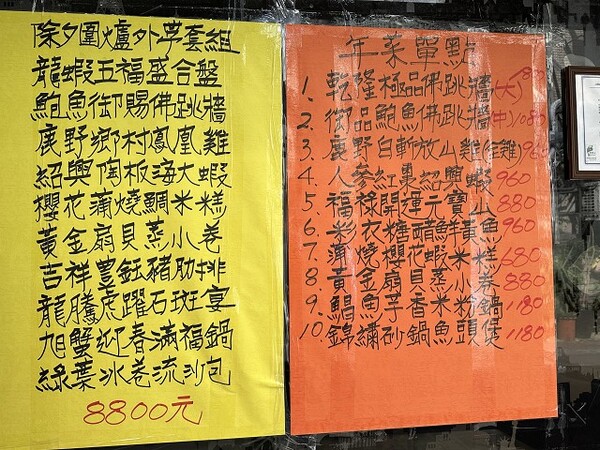 除夕圍爐外帶套組
龍蝦五福盛合盤
鮑魚御賜佛跳牆
鹿野鄉村鳳凰雞
紹興陶板海大蝦
櫻花蒲燒鯛米糕
黃金扇貝蒸小卷
吉祥豐鈺豬肋排
龍騰虎躍石斑宴
旭蟹迎春滿福鍋
綠葉冰卷流沙包
8800元
年菜單點
1. 乾隆極品佛跳牆(大)
2. 御品鮑魚佛跳牆(中)1080
3. 鹿野白斬放山雞(全雞)960
4. 人參紅棗紹興蝦960
5. 福祿開運元寶山880
6. 彩衣糖醋鮮黃魚960
7. 蒲燒櫻花蝦米糕680
8. 黃金扇貝蒸小卷880
9. 鯧魚芋香米粉鍋1180
10. 錦繡砂鍋魚頭煲1180